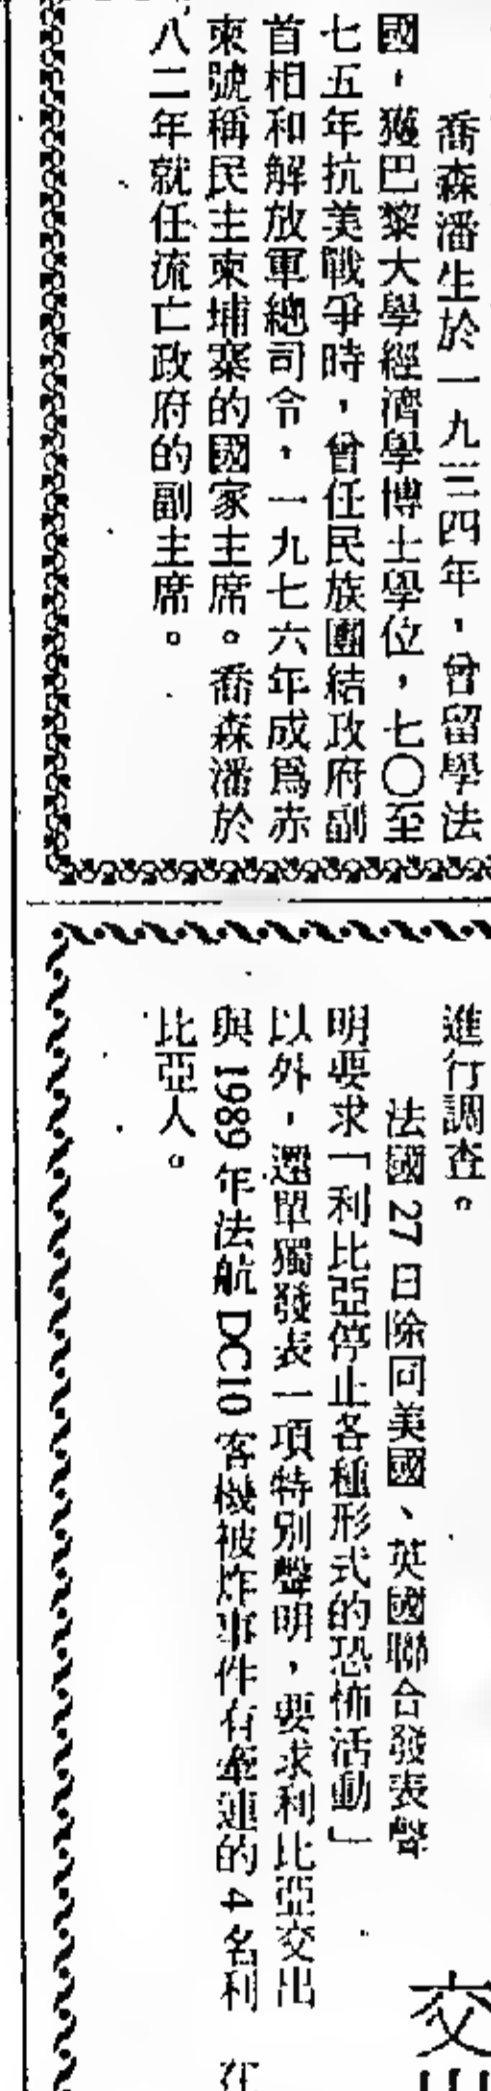 喬森潘生於一九三四年，曾留學法
國，獲巴黎大學經濟學博士學位，七〇至
七五年抗美戰爭時，曾任民族團結政府副
首相和解放軍總司令，一九七六年成爲赤
柬號稱民主柬埔寨的國家主席。喬森潘於
八二年就任流亡政府的副主席。
進行調查。
法國27日除同美國、英國聯合發表聲
明要求「利比亞停止各種形式的恐怖活動」
以外，還單獨發表一項特別聲明，要求利比亞交出
與1989年法航DC10客機被炸事件有牽連的4名利
比亞人。
交
在